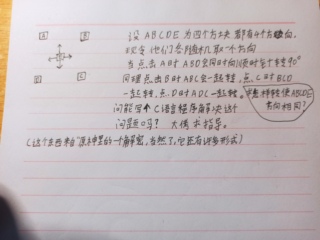 A B
E C
设 ABCDE 为四个方块 都有4个方向,
现令他们各随机取一个方向
当点击A时 ABD会同时向顺时针转90°
同理点击B时ABC会一起转,点C时BCD
一起转,点D时ADC一起转。求怎样转使ABCDE方向相同?
问能写个C语言程序解决这个
问题吗? 大佬求指导。
(这个东西来自“原神里的一个解密,当然了,它还有进阶形式)